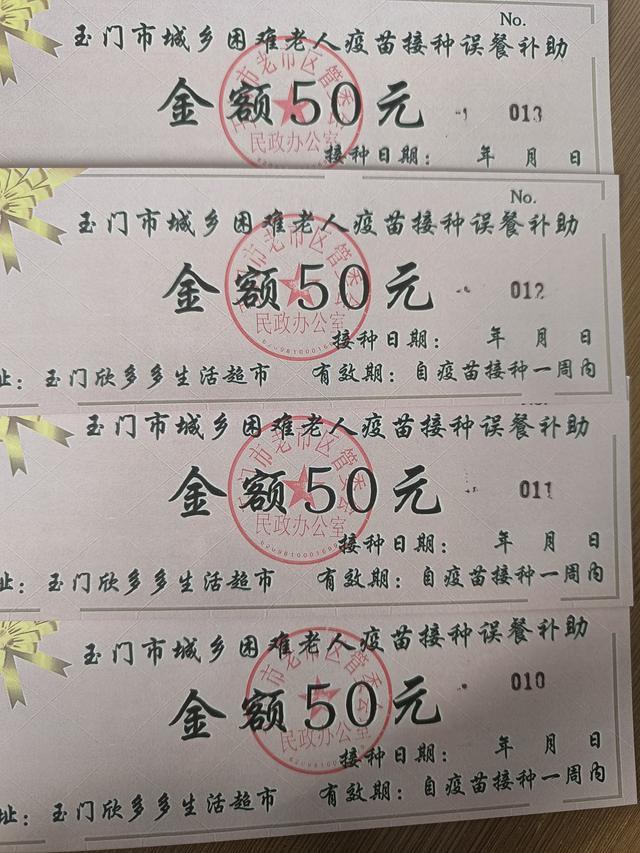 No.
玉门市城乡困难老人疫苗接种误餐补助
金额50元
013
市老市区管委会
民政办公室
接种日期： 年 月 日
No.
玉门市城乡困难老人疫苗接种误餐补助
金额50元
012
市老市区管委会
民政办公室
接种日期： 年 月 日
址：玉门欣多多生活超市 有效期：自疫苗接种一周内
玉门市城乡困难老人疫苗接种误餐补助
金额50元
011
门市老市区管委会
民政办公室
接种日期： 年 月 日
址：玉门欣多多生活超市 有效期：自疫苗接种一周内
玉门市城乡困难老人疫苗接种误餐补助
金额50元
010
市老市区管委会
民政办公室
接种日期： 年 月 日
址：玉门欣多多生活超市 有效期：自疫苗接种一周内